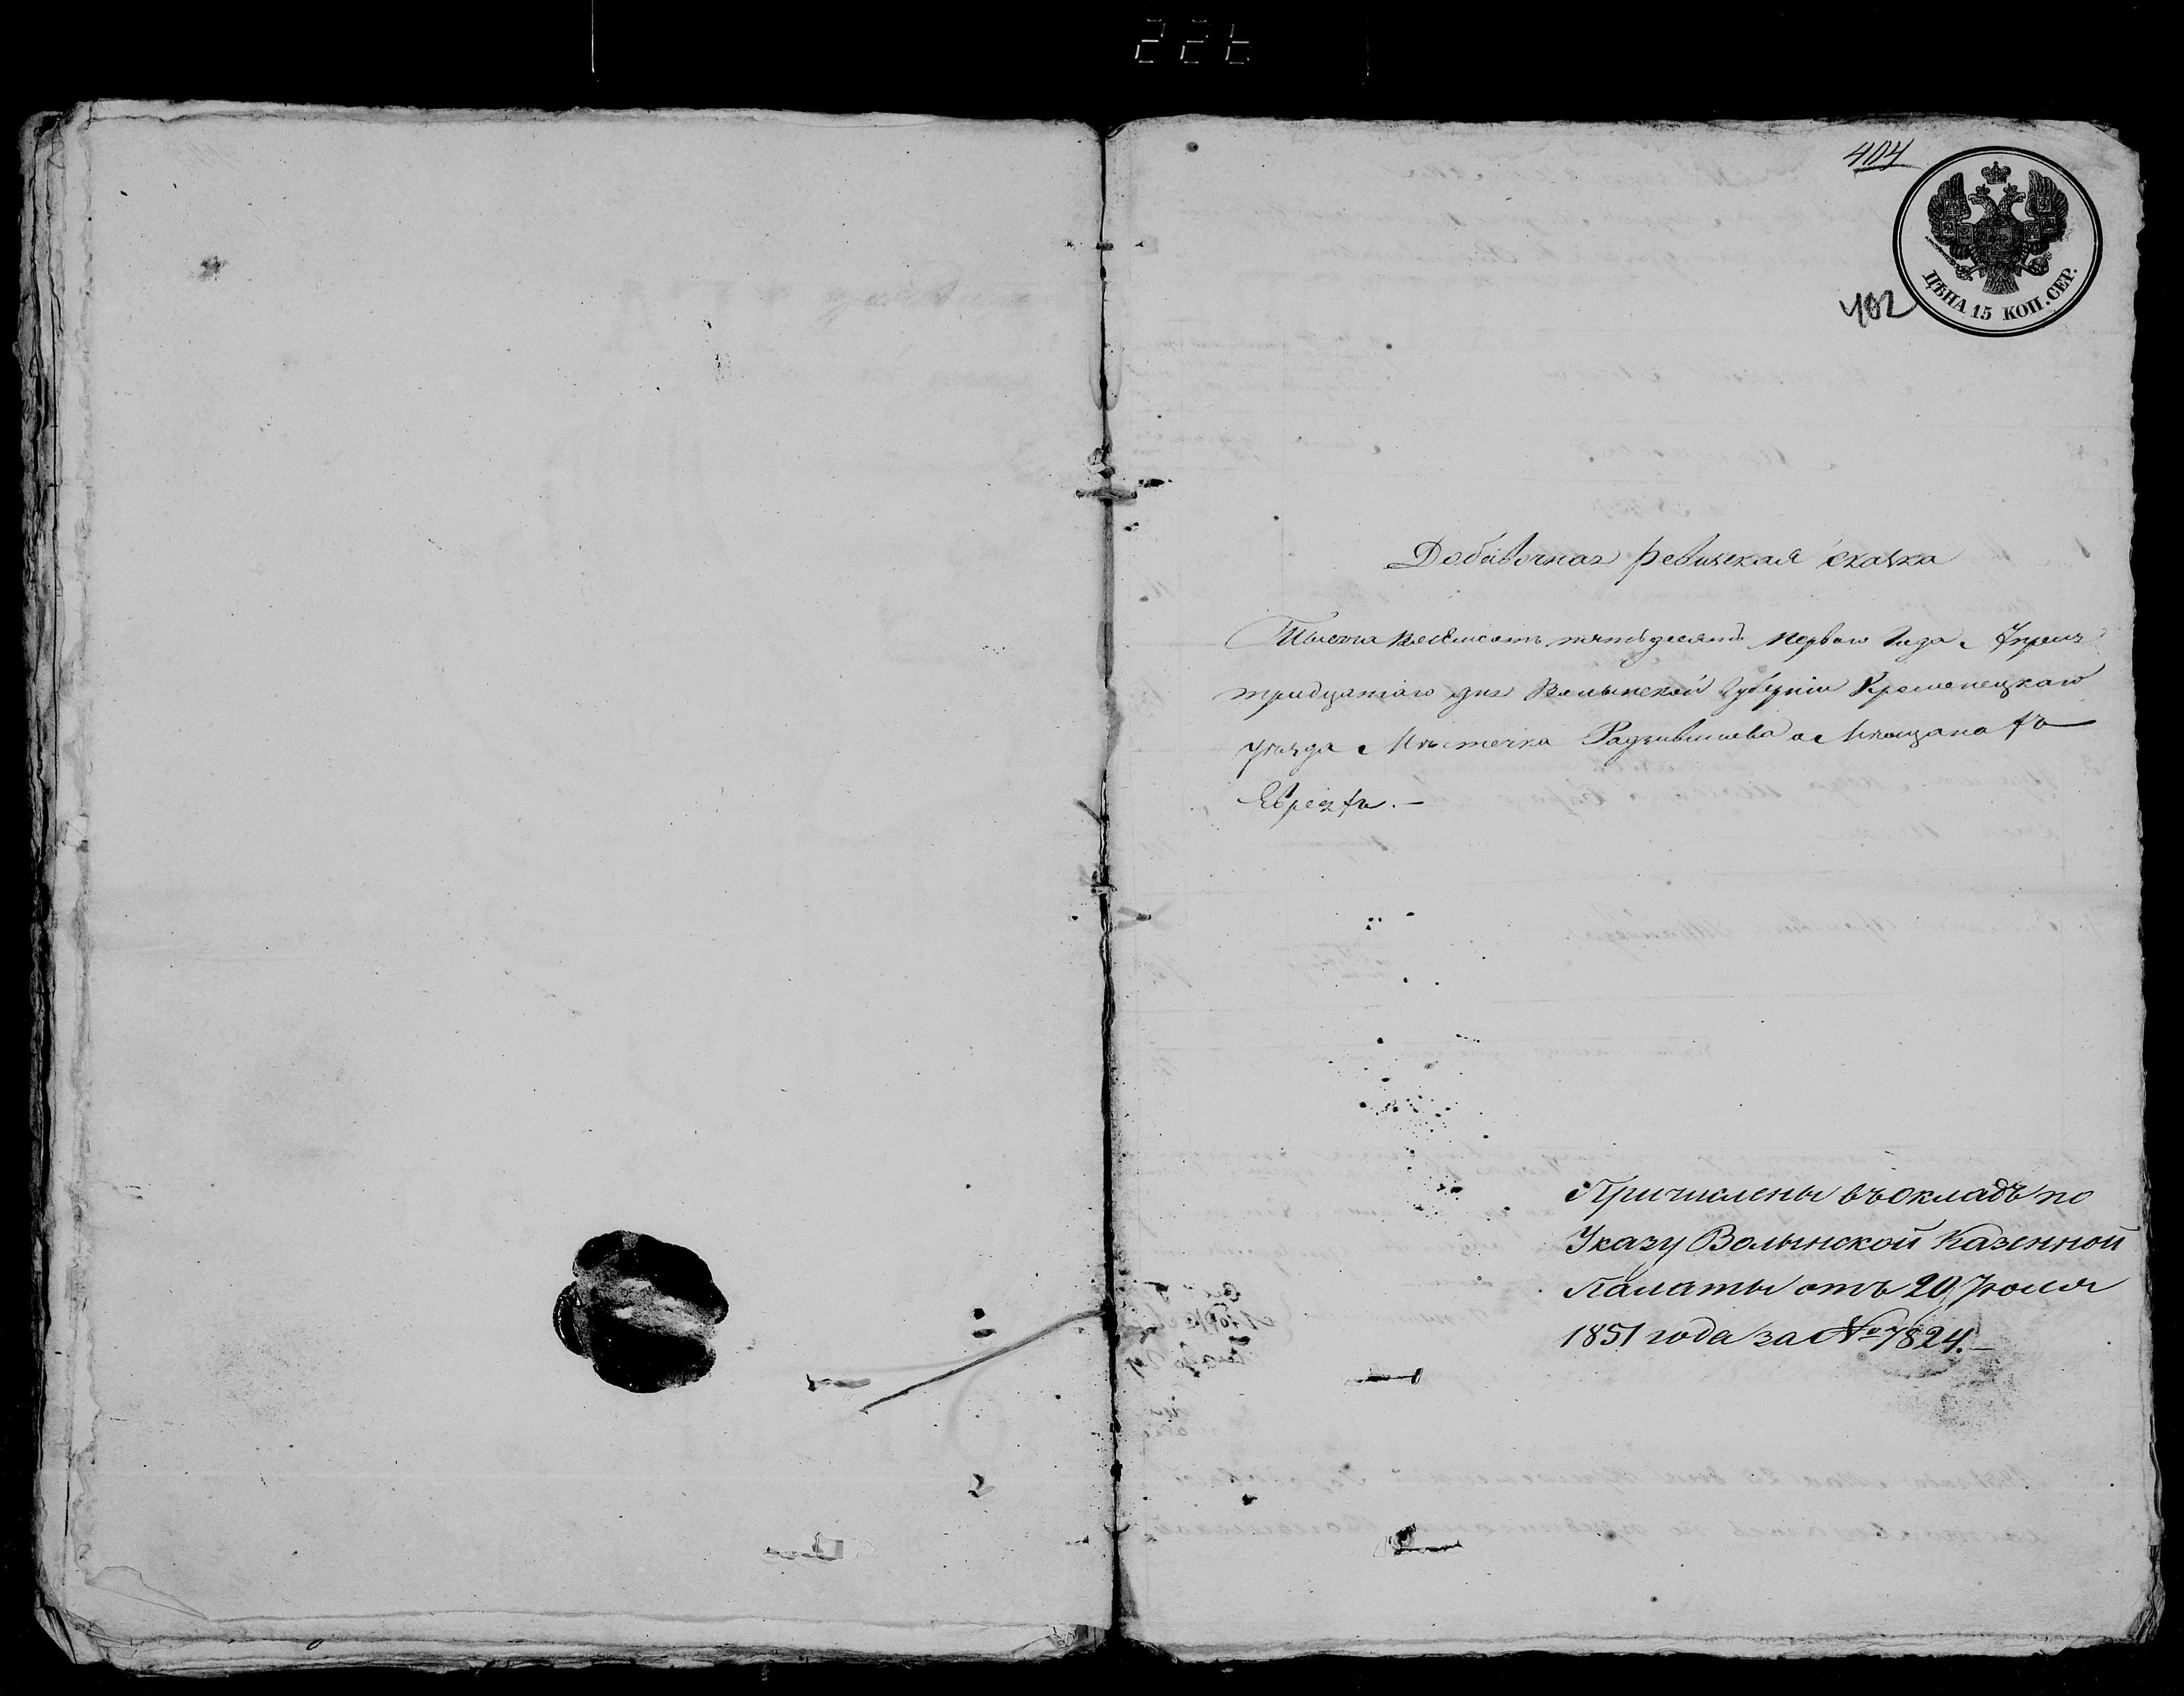 226
404
ЦѢНА 15 КОП. СЕР.
402
Добавочная Ревизская сказка
Тысяча восемсотъ пятьдесятъ перваго года Апреля
тридцатаго дня Волынской Губерніи Кременецкаго
уѣзда Мѣстечка Радзивилова о Мѣщанахъ
Евреяхъ. –
Причислены въ окладъ по
Указу Волынской Казенной
Палаты отъ 20 Іюля
1851 года за № 7824. –